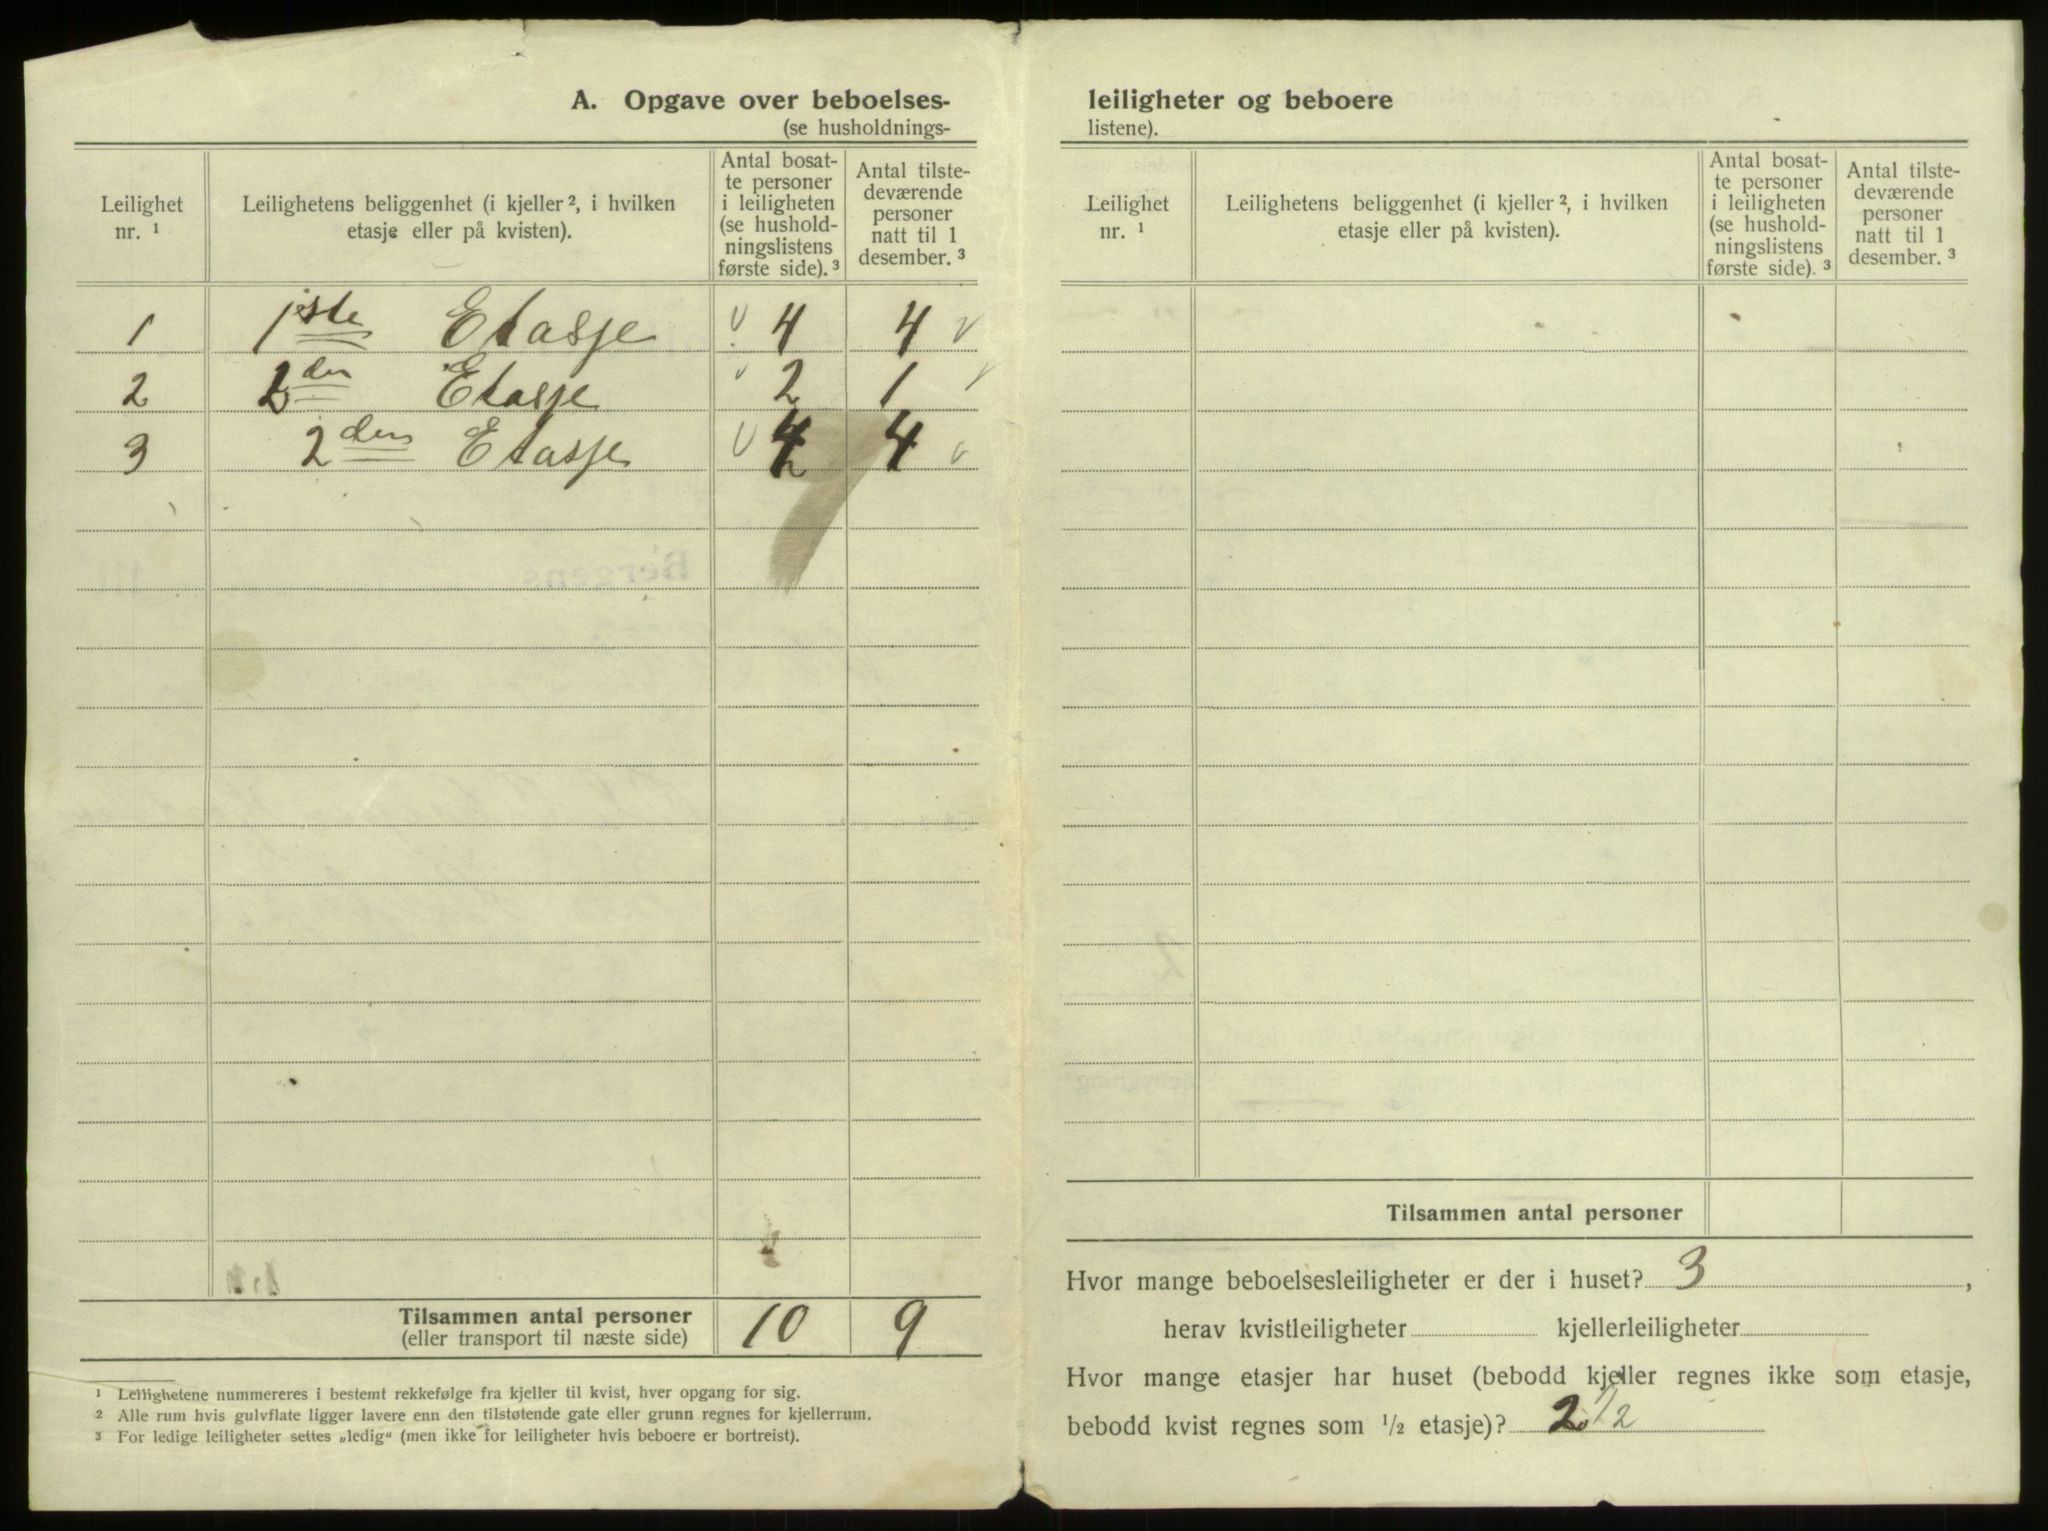 A. Opgave over beboelses-
(se husholdnings-
Leilighet nr. ¹
Leilighetens beliggenhet (i kjeller ², i hvilken
etasje eller på kvisten).
Antal bosat-
te personer
i leiligheten
(se hushold-
ningslistens
første side). ³
Antal tilste-
deværende
personer
natt til 1
desember. ³
1 1ste Etasje 4 4
2 2den Etasje 2 1
3 2den Etasje 4 4
Tilsammen antal personer 10 9
(eller transport til næste side)
¹ Leilighetene nummereres i bestemt rekkefølge fra kjeller til kvist, hver opgang for sig.
² Alle rum hvis gulvflate ligger lavere enn den tilstøtende gate eller grunn regnes for kjellerrum.
³ For ledige leiligheter settes „ledig“ (men ikke for leiligheter hvis beboere er bortreist).
leiligheter og beboere
listene).
Leilighet nr. ¹
Leilighetens beliggenhet (i kjeller ², i hvilken
etasje eller på kvisten).
Antal bosat-
te personer
i leiligheten
(se hushold-
ningslistens
første side). ³
Antal tilste-
deværende
personer
natt til 1
desember. ³
Tilsammen antal personer
Hvor mange beboelsesleiligheter er der i huset? 3 ,
herav kvistleiligheter kjellerleiligheter
Hvor mange etasjer har huset (bebodd kjeller regnes ikke som etasje,
bebodd kvist regnes som ½ etasje)? 2 1/2